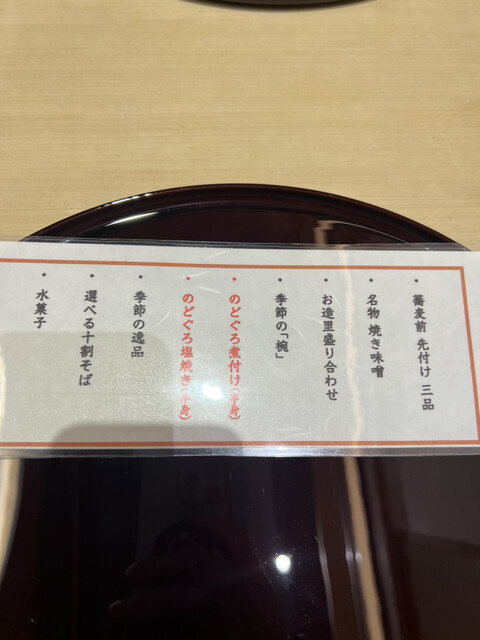 ・蕎麦前 先付け 三品
・名物 焼き味噌
・お造里盛り合わせ
・季節の「椀」
・のどぐろ煮付け(半身)
・のどぐろ塩焼き(半身)
・季節の逸品
・選べる十割そば
・水菓子